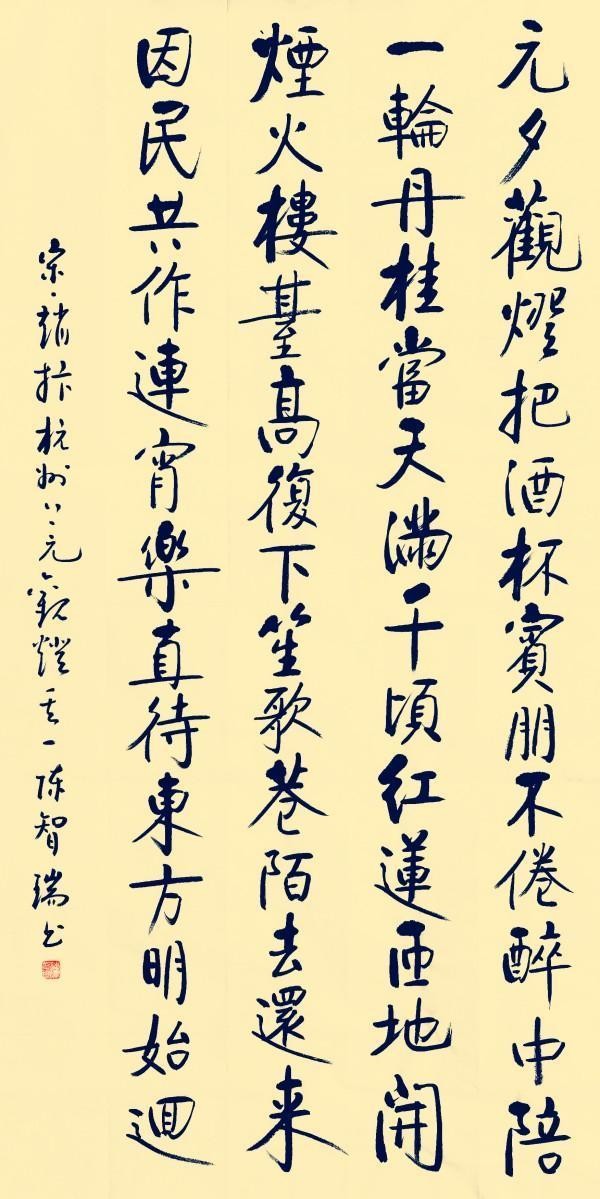 元夕觀燈把酒杯賓朋不倦醉中陪
一輪丹桂當天滿千頃紅蓮匝地開
煙火樓臺高復下笙歌巷陌去還来
因民共作連宵樂直待東方明始迴
宋·趙抃杭州上元觀燈其一陈智瑞书